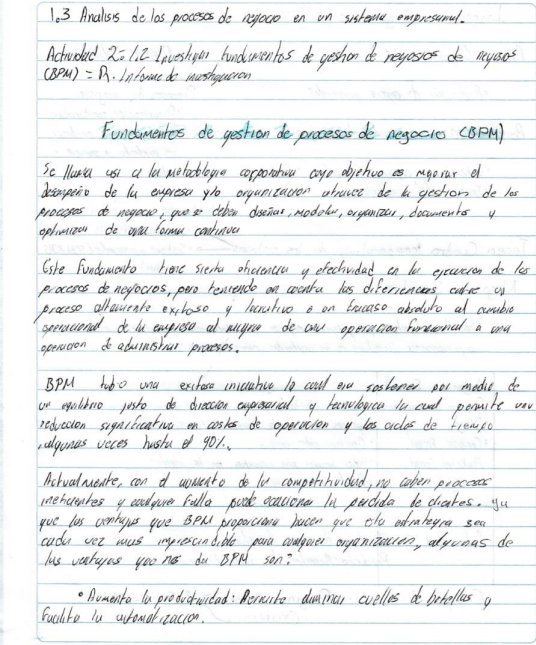 1.3 Analisis de los procesos de negocio en un sistema empresarial.
Actividad 2= 1.2 Investigar fundamentos de gestion de negosios de negosios
(BPM) = R. Informe de investigacion
Fundamentos de gestion de procesos de negocio (BPM)
Se llama asi a la metodologia corporativa cuyo objetivo es mejorar el
desempeño de la empresa y/o organizacion atravez de la gestion de los
procesos de negocio, que se deben diseñar, modelar, organizar, documentar y
optimizar de una forma continua
Este Fundamento tiene sierta eficiencia y efectividad en la ejecucion de los
procesos de negocios, pero teniendo en cuenta las diferiencias entre un
proceso altamente exitoso y lucrativo o un fracaso absoluto al cambio
operacional de la empresa al migrar de una operacion funcional a una
operacion de administrar procesos.
BPM tubo una exitosa iniciativa la cual era sostener por medio de
un equilibrio justo de direccion empresarial y tecnologica la cual permite una
reduccion significativa en costos de operacion y los ciclos de tiempo
,algunas veces hasta el 90%.
Actualmente, con el aumento de la competitividad, no caben procesos
ineficientes y cualquier falla puede ocacionar la perdida de clientes. ya
que las ventajas que BPM proporciona hacen que esta estrategia sea
cada vez mas imprescindible para cualquier organizacion, algunas de
las ventajas que nos da BPM son:
• Aumenta la productividad: Permite eliminar cuellos de botellas y
facilita la automatizacion.